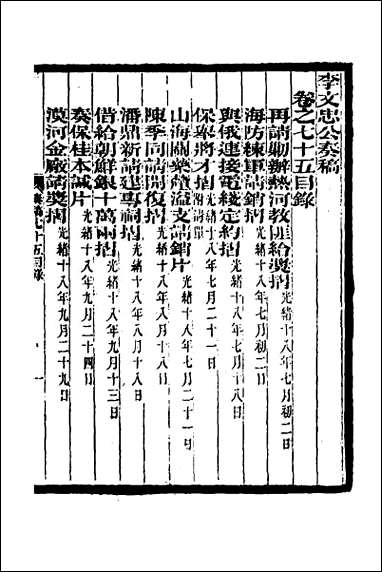 李文忠公奏稿
卷之七十五目錄
再請勦辦熱河教匪給獎摺 光緒十八年七月初二日
海防練軍請銷摺 光緒十八年七月初二日
與俄連接電綫定約摺 光緒十八年七月十八日
保舉將才摺 附清單 光緒十八年七月二十一日
山海關藥釐溢支請銷片 光緒十八年七月二十一日
陳季同請開復摺 光緒十八年八月十八日
潘鼎新請建專祠摺 光緒十八年八月十八日
借給朝鮮銀十萬兩摺 光緒十八年九月十三日
奏保桂本誠片 光緒十八年九月二十四日
漠河金廠請獎摺 光緒十八年九月二十九日